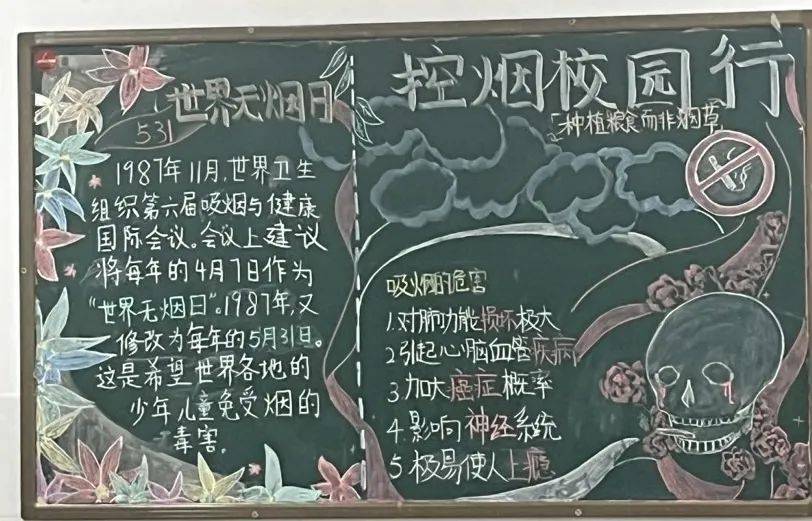 世界无烟日
531
1987年11月,世界卫生
组织第六届吸烟与健康
国际会议。会议上建议
将每年的4月7日作为
“世界无烟日”。1987年,又
修改为每年的5月31日。
这是希望世界各地的
少年儿童免受烟的
毒害。
控烟校园行
「种植粮食而非烟草
吸烟的危害
1.对肺功能损坏极大
2引起心脑血管疾病
3加大癌症概率
4.影响神经系统
5.极易使人上瘾